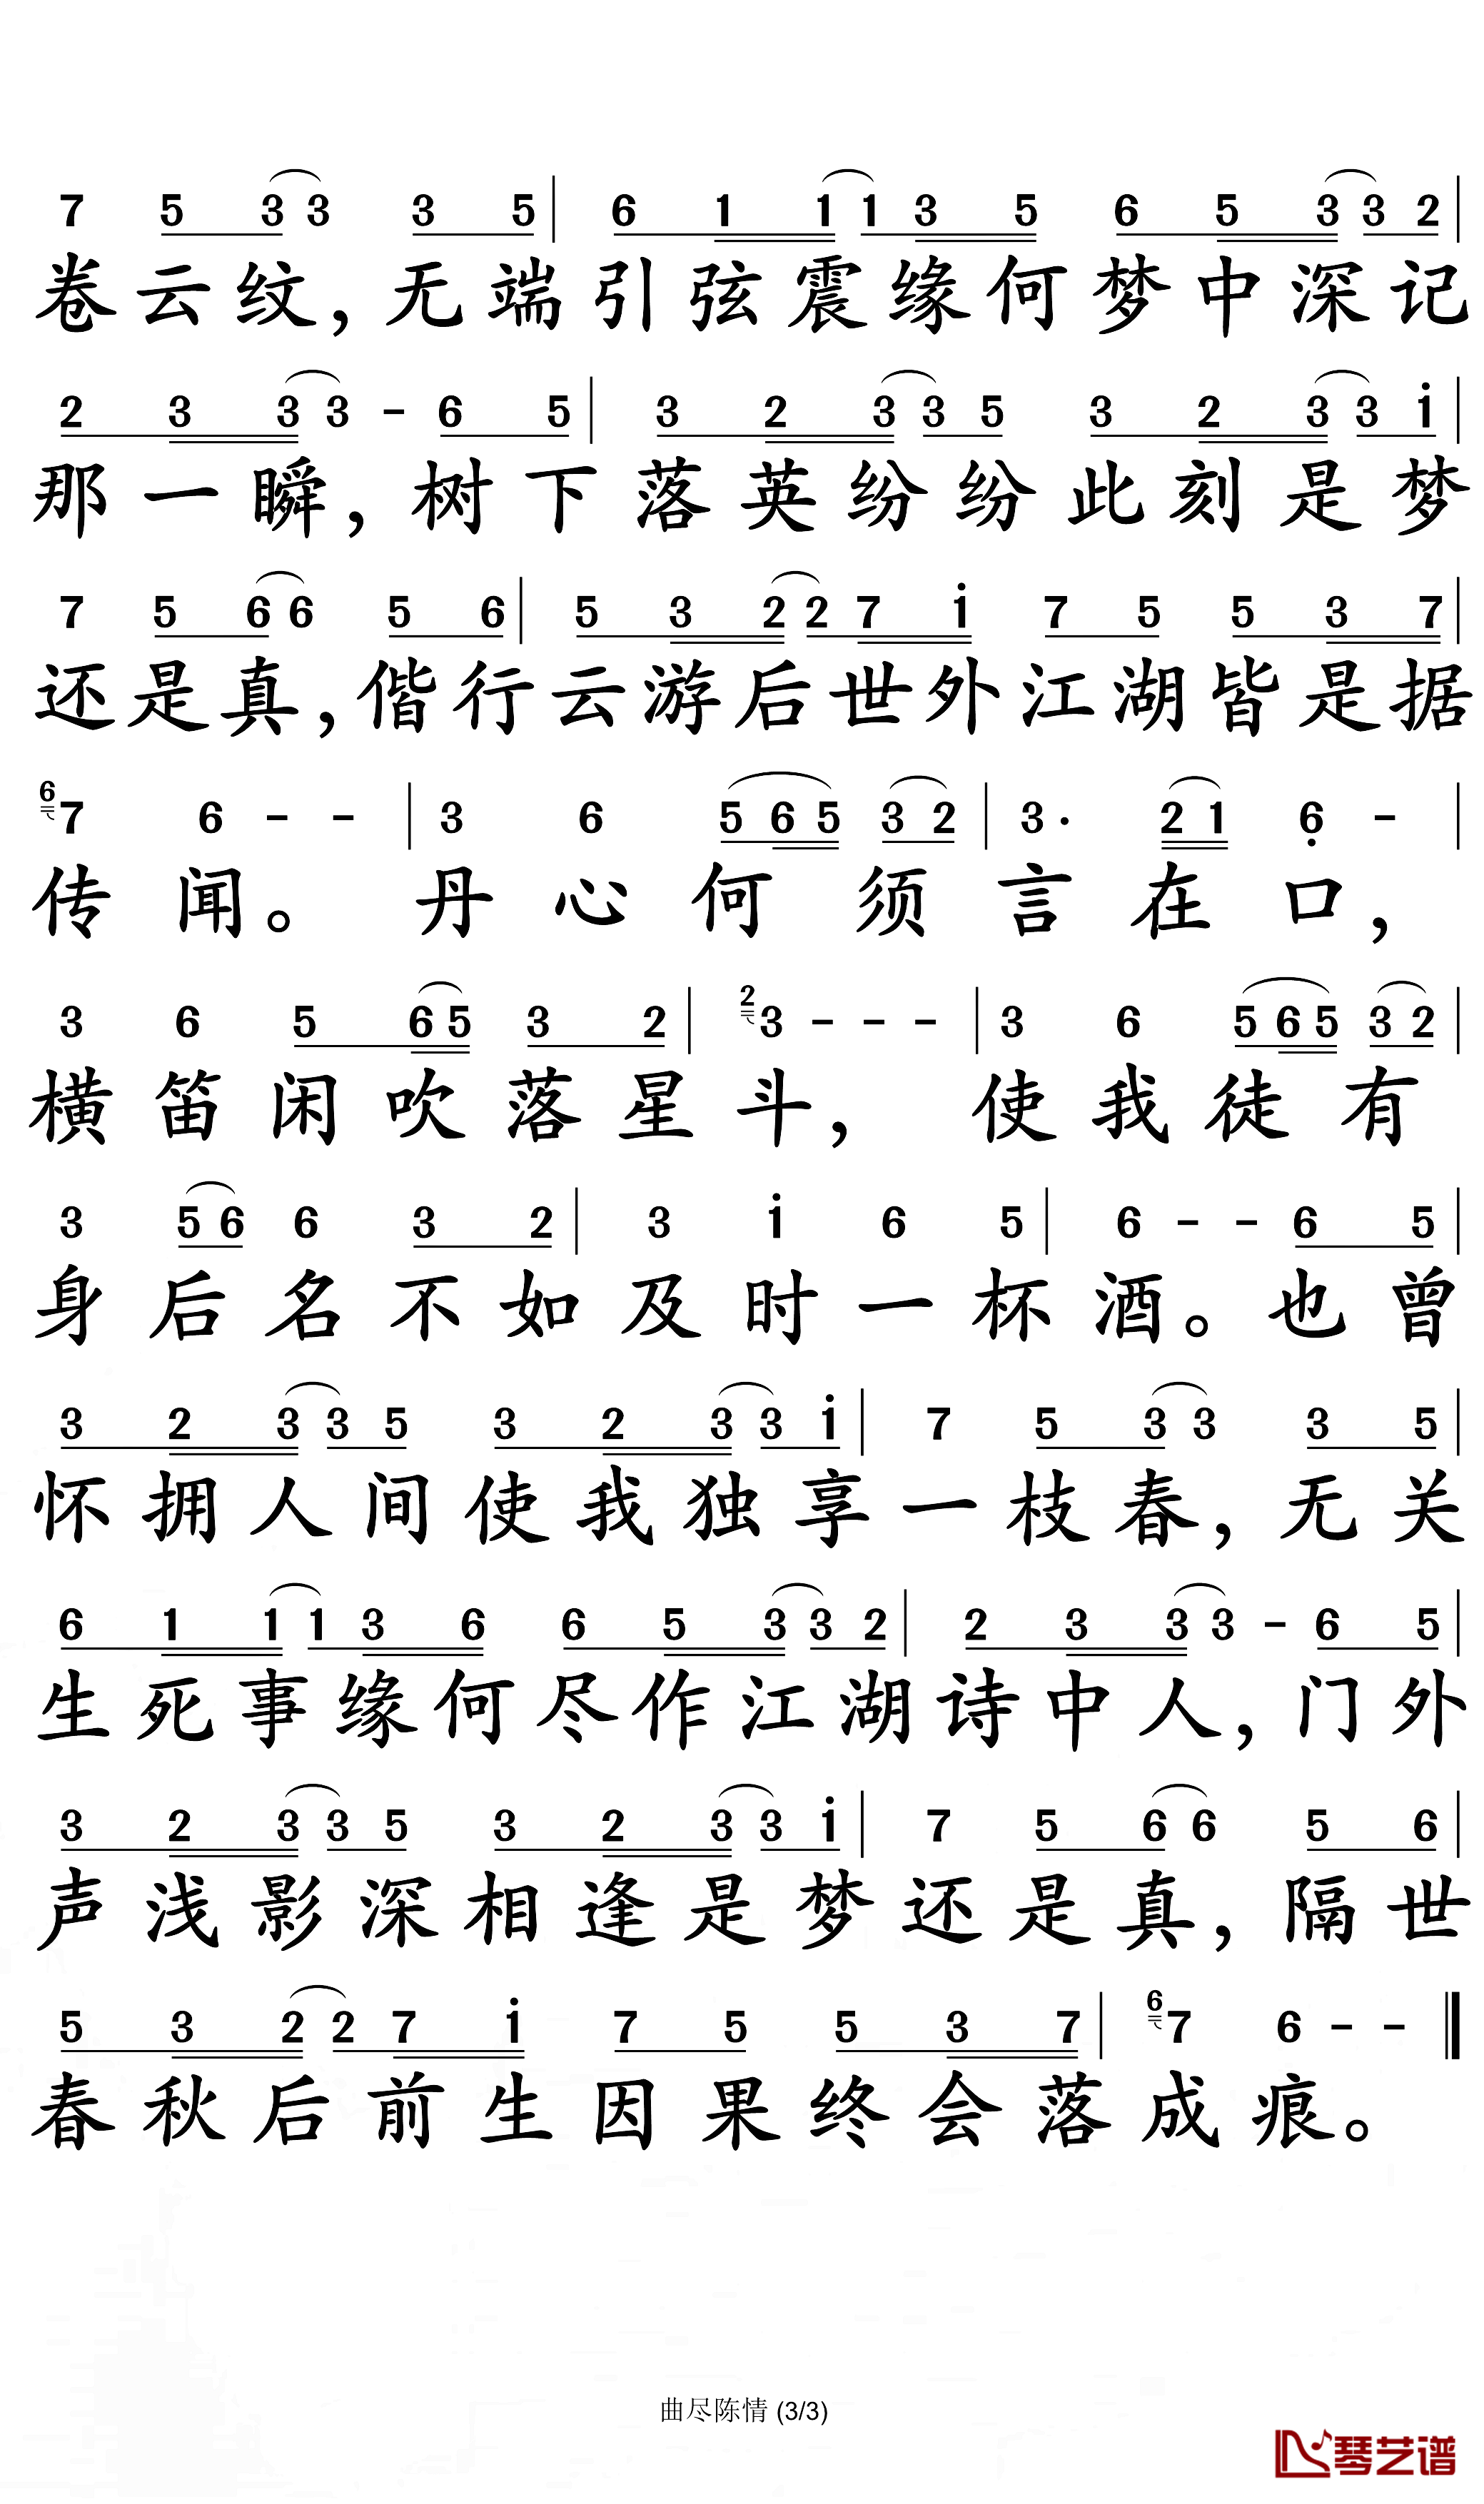 7 5 3 3 3 5 | 6 1 1 1 3 5 6 5 3 3 2 |
卷云纹，无端引弦震缘何梦中深记
2 3 3 3 - 6 5 | 3 2 3 3 5 3 2 3 3 i |
那一瞬，树下落英纷纷此刻是梦
7 5 6 6 5 6 | 5 3 2 2 7 i 7 5 5 3 7 |
还是真，偕行云游后世外江湖皆是据
6 7 6 - - | 3 6 5 6 5 3 2 | 3· 2 1 6̣ - |
传闻。丹心何须言在口，
3 6 5 6 5 3 2 | 2 3 - - - | 3 6 5 6 5 3 2 |
横笛闲吹落星斗，使我徒有
3 5 6 6 3 2 | 3 i 6 5 | 6 - - 6 5 |
身后名不如及时一杯酒。也曾
3 2 3 3 5 3 2 3 3 i | 7 5 3 3 3 5 |
怀拥人间使我独享一枝春，无关
6 1 1 1 3 6 6 5 3 3 2 | 2 3 3 3 - 6 5 |
生死事缘何尽作江湖诗中人，门外
3 2 3 3 5 3 2 3 3 i | 7 5 6 6 5 6 |
声浅影深相逢是梦还是真，隔世
5 3 2 2 7 i 7 5 5 3 7 | 6 7 6 - - ‖
春秋后前生因果终会落成痕。
曲尽陈情 (3/3)
琴艺谱